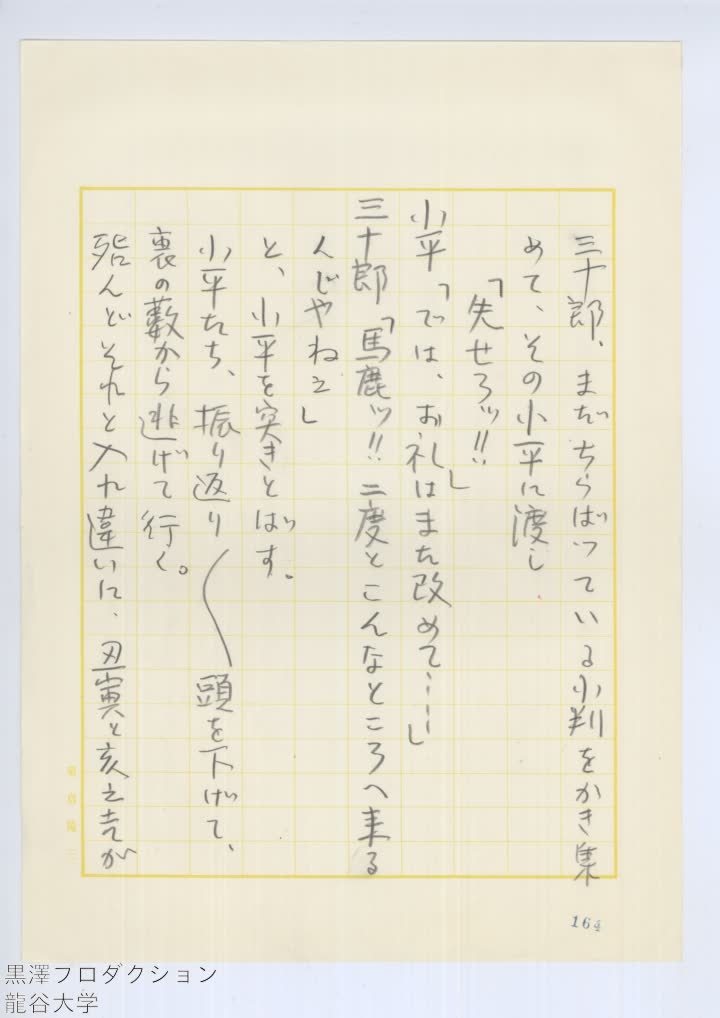 三十郎、まだちらばっている小判をかき集
めて、その小平に渡し、
「失せろッ!!」
小平「では、お礼はまた改めて……」
三十郎「馬鹿ッ!! 二度とこんなところへ来る
んじやねえ」
と、小平を突きとばす。
小平たち、振り返り〳〵頭を下げて、
裏の藪から逃げて行く。
殆んどそれと入れ違いに、丑寅と亥之吉が
164
黒澤プロダクション
龍谷大学